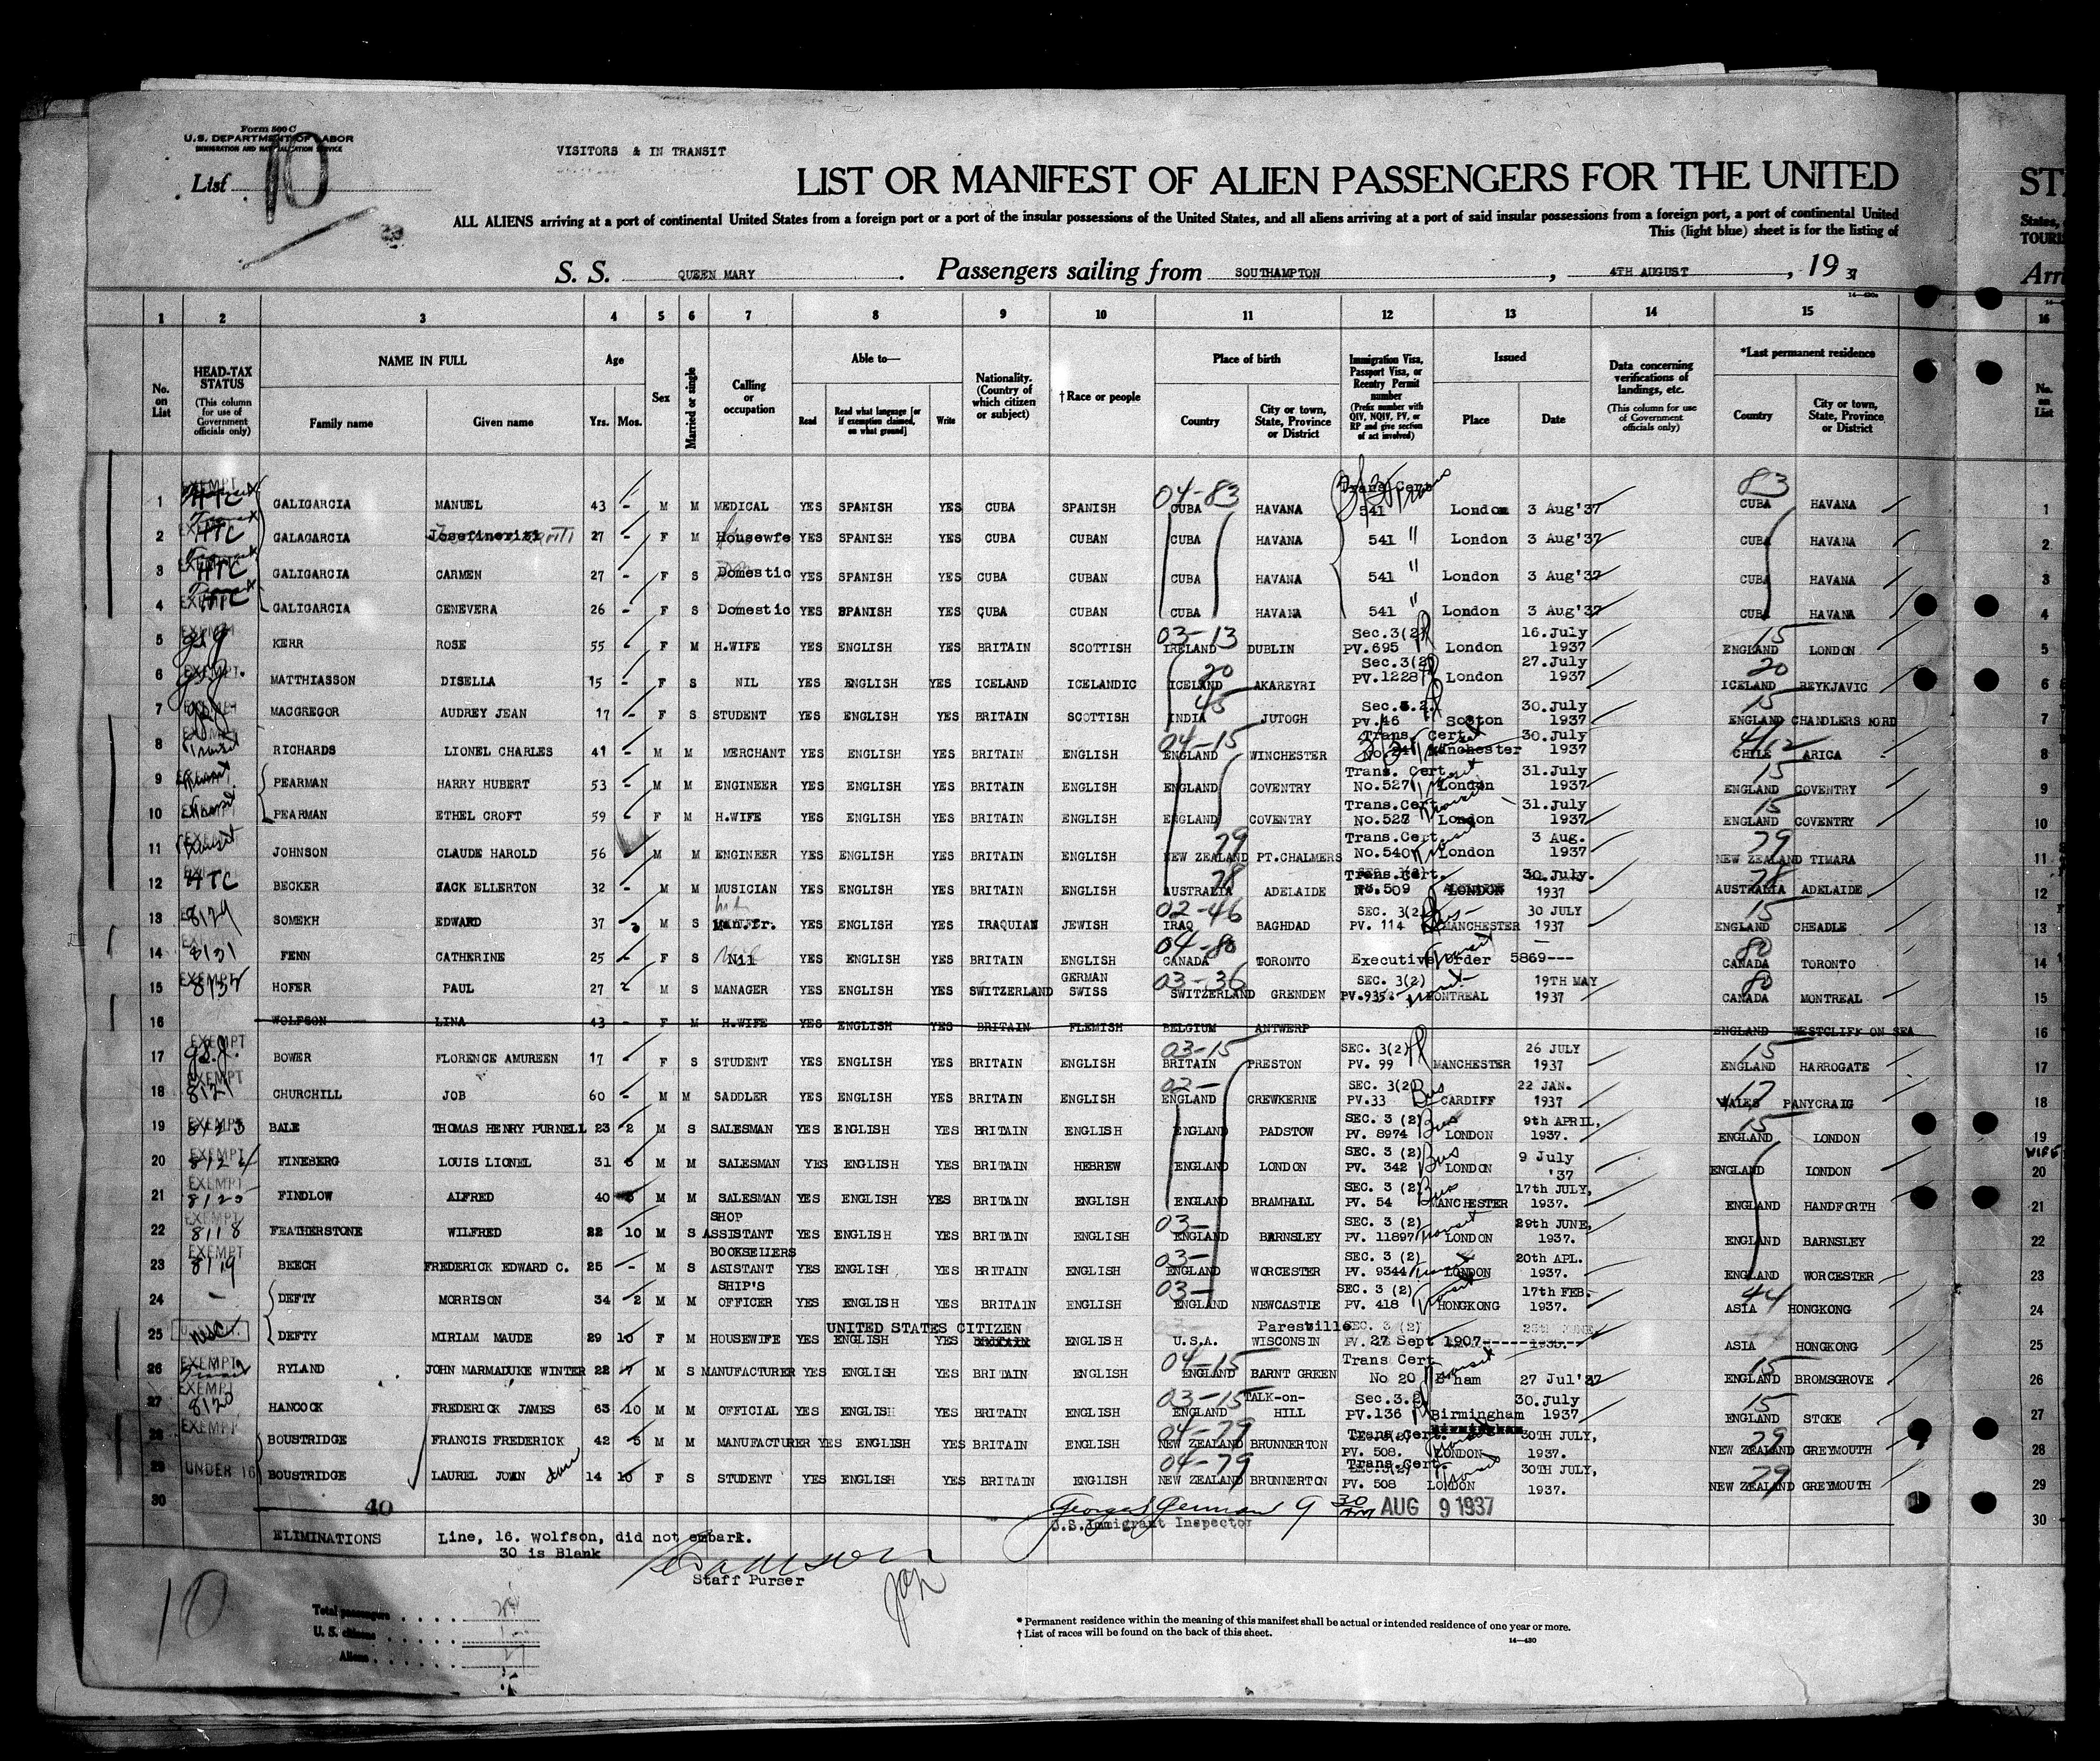 Form 500 C
U.S. DEPARTMENT OF LABOR
IMMIGRATION AND NATURALIZATION SERVICE
List 10
VISITORS & IN TRANSIT
LIST OR MANIFEST OF ALIEN PASSENGERS FOR THE UNITED
ALL ALIENS arriving at a port of continental United States from a foreign port or a port of the insular possessions of the United States, and all aliens arriving at a port of said insular possessions from a foreign port, a port of continental United
This (light blue) sheet is for the listing of
S. S. QUEEN MARY. Passengers sailing from SOUTHAMPTON, 4TH AUGUST, 19 37
ST
States,
TOURIS
Arri
1 2 3 4 5 6 7 8 9 10 11 12 13 14 15 16
No. on List
HEAD-TAX STATUS (This column for use of Government officials only)
NAME IN FULL Family name Given name
Age Yrs. Mos.
Sex
Married or single
Calling or occupation
Able to— Read Read what language [or if exemption claimed, on what ground] Write
Nationality. (Country of which citizen or subject)
†Race or people
Place of birth Country City or town, State, Province or District
Immigration Visa, Passport Visa, or Reentry Permit number (Prefix number with QIV, NQIV, PV, or RP and give section of act involved)
Issued Place Date
Data concerning verifications of landings, etc. (This column for use of Government officials only)
*Last permanent residence Country City or town, State, Province or District
No. on List
1 EXEMPT HTC GALIGARCIA MANUEL 43 - M M MEDICAL YES SPANISH YES CUBA SPANISH 04-83 CUBA HAVANA Trans Cert 541 London 3 Aug'37 83 CUBA HAVANA 1
2 HTC GALAGARCIA 27 - F M Housewfe YES SPANISH YES CUBA CUBAN CUBA HAVANA 541 " London 3 Aug'37 CUBA HAVANA 2
3 HTC GALIGARCIA CARMEN 27 - F S Domestic YES SPANISH YES CUBA CUBAN CUBA HAVANA 541 " London 3 Aug'37 CUBA HAVANA 3
4 EXEMPT HTC GALIGARCIA GENEVERA 26 - F S Domestic YES SPANISH YES CUBA CUBAN CUBA HAVANA 541 " London 3 Aug'37 CUBA HAVANA 4
5 EXEMPT KERR ROSE 55 F M H.WIFE YES ENGLISH YES BRITAIN SCOTTISH 03-13 IRELAND DUBLIN Sec.3(2) PV.695 London 16.July 1937 15 ENGLAND LONDON 5
6 EXEMPT MATTHIASSON DISELLA 15 - F S NIL YES ENGLISH YES ICELAND ICELANDIC 20 ICELAND AKAREYRI Sec.3(2) PV.1228 London 27.July 1937 20 ICELAND REYKJAVIC 6
7 EXEMPT MACGREGOR AUDREY JEAN 17 - F S STUDENT YES ENGLISH YES BRITAIN SCOTTISH 45 INDIA JUTOGH Sec.3.2. PV.46 30.July 1937 15 ENGLAND CHANDLERS 7
8 Transit RICHARDS LIONEL CHARLES 41 - M M MERCHANT YES ENGLISH YES BRITAIN ENGLISH 04-15 ENGLAND WINCHESTER Trans. Cert. 30.July 1937 CHILE ARICA 8
9 PEARMAN HARRY HUBERT 53 - M M ENGINEER YES ENGLISH YES BRITAIN ENGLISH ENGLAND COVENTRY Trans. Cert. No.527 London 31.July 1937 15 ENGLAND COVENTRY 9
10 PEARMAN ETHEL CROFT 59 F M H.WIFE YES ENGLISH YES BRITAIN ENGLISH ENGLAND COVENTRY Trans.Cert. No.528 London 31.July 1937 15 ENGLAND COVENTRY 10
11 Transit JOHNSON CLAUDE HAROLD 56 M M ENGINEER YES ENGLISH YES BRITAIN ENGLISH 79 NEW ZEALAND PT.CHALMERS Trans.Cert. No.540 London 3 Aug. 1937 79 NEW ZEALAND TIMARA 11
12 HTC BECKER JACK ELLERTON 32 - M M MUSICIAN YES ENGLISH YES BRITAIN ENGLISH 78 AUSTRALIA ADELAIDE Trans.Cert. No.509 LONDON 30.July. 1937 78 AUSTRALIA ADELAIDE 12
13 8129 SOMEKH EDWARD 37 3 M S Man.fr. YES ENGLISH YES IRAQUIAN JEWISH 02-46 IRAQ BAGHDAD SEC. 3(2) PV. 114 Bus MANCHESTER 30 JULY 1937 15 ENGLAND CHEADLE 13
14 8131 FENN CATHERINE 25 - F S Nil YES ENGLISH YES BRITAIN ENGLISH 04-80 CANADA TORONTO Executive Order 5869--- 80 CANADA TORONTO 14
15 EXEMPT 8132 HOFER PAUL 27 2 M S MANAGER YES ENGLISH YES SWITZERLAND GERMAN SWISS 03-36 SWITZERLAND GRENDEN SEC. 3(2) PV.935 MONTREAL 19TH MAY 1937 80 CANADA MONTREAL 15
16 WOLFSON LINA 43 - F M H.WIFE YES ENGLISH YES BRITAIN FLEMISH BELGIUM ANTWERP ENGLAND WESTCLIFF ON SEA 16
17 EXEMPT BOWER FLORENCE AMUREEN 17 F S STUDENT YES ENGLISH YES BRITAIN ENGLISH 03-15 BRITAIN PRESTON SEC. 3(2) PV. 99 MANCHESTER 26 JULY 1937 15 ENGLAND HARROGATE 17
18 EXEMPT 8121 CHURCHILL JOB 60 - M M SADDLER YES ENGLISH YES BRITAIN ENGLISH 02- ENGLAND CREWKERNE SEC. 3(2) PV.33 Bus CARDIFF 22 JAN. 1937 17 WALES PANYCRAIG 18
19 EXEMPT 8123 BALE THOMAS HENRY PURNELL 23 2 M S SALESMAN YES ENGLISH YES BRITAIN ENGLISH ENGLAND PADSTOW SEC. 3 (2) PV. 8974 Bus LONDON 9th APRIL, 1937. 15 ENGLAND LONDON 19
20 EXEMPT FINEBERG LOUIS LIONEL 31 M M SALESMAN YES ENGLISH YES BRITAIN HEBREW ENGLAND LONDON SEC. 3 (2) PV. 342 Bus LONDON 9 July '37 ENGLAND LONDON WIFE 20
21 EXEMPT 8125 FINDLOW ALFRED 40 M M SALESMAN YES ENGLISH YES BRITAIN ENGLISH ENGLAND BRAMHALL SEC. 3 (2) PV. 54 Bus MANCHESTER 17th JULY, 1937. ENGLAND HANDFORTH 21
22 EXEMPT 8118 FEATHERSTONE WILFRED 22 10 M S SHOP ASSISTANT YES ENGLISH YES BRITAIN ENGLISH 03- ENGLAND BARNSLEY SEC. 3 (2) PV. 11897 Transit LONDON 29th JUNE, 1937. ENGLAND BARNSLEY 22
23 EXEMPT 8119 BEECH FREDERICK EDWARD C. 25 - M S BOOKSELLERS ASISTANT YES ENGLISH YES BRITAIN ENGLISH 03- ENGLAND WORCESTER SEC. 3 (2) PV. 9344 LONDON 20th APL. 1937. ENGLAND WORCESTER 23
24 - DEFTY MORRISON 34 2 M M SHIP'S OFFICER YES ENGLISH YES BRITAIN ENGLISH 03- ENGLAND NEWCASTLE SEC. 3 (2) PV. 418 HONGKONG 17th FEB. 1937. 44 ASIA HONGKONG 24
25 DEFTY MIRIAM MAUDE 29 10 F M HOUSEWIFE YES ENGLISH YES UNITED STATES CITIZEN BRITAIN ENGLISH U.S.A. Paresville WISCONSIN SEC. 3 (2) PV. 27 Sept 1907 ASIA HONGKONG 25
26 EXEMPT RYLAND JOHN MARMADUKE WINTER 22 M S MANUFACTURER YES ENGLISH YES BRITAIN ENGLISH 04-15 ENGLAND BARNT GREEN Trans Cert No 20 Transit B'ham 27 Jul'37 15 ENGLAND BROMSGROVE 26
27 EXEMPT 8120 HANCOCK FREDERICK JAMES 63 10 M M OFFICIAL YES ENGLISH YES BRITAIN ENGLISH 03-15 ENGLAND TALK-on-HILL Sec.3.2 PV.136 Birmingham 30.July 1937 15 ENGLAND STOKE 27
28 EXEMPT BOUSTRIDGE FRANCIS FREDERICK 42 5 M M MANUFACTURER YES ENGLISH YES BRITAIN ENGLISH 04-79 NEW ZEALAND BRUNNERTON Trans. Cert. PV. 508. LONDON 30TH JULY, 1937. 79 NEW ZEALAND GREYMOUTH 28
29 UNDER 16 BOUSTRIDGE LAUREL JOWN 14 10 F S STUDENT YES ENGLISH YES BRITAIN ENGLISH 04-79 NEW ZEALAND BRUNNERTON Trans. Cert. PV. 508 Transit LONDON 30TH JULY, 1937. 79 NEW ZEALAND GREYMOUTH 29
30 40 9 30 AM AUG 9 1937 30
U.S. Immigrant Inspector
ELIMINATIONS Line, 16. wolfson, did not embark.
30 is Blank
Staff Purser
10
Total passengers
U. S. citizens
Aliens
* Permanent residence within the meaning of this manifest shall be actual or intended residence of one year or more.
† List of races will be found on the back of this sheet.
14—430